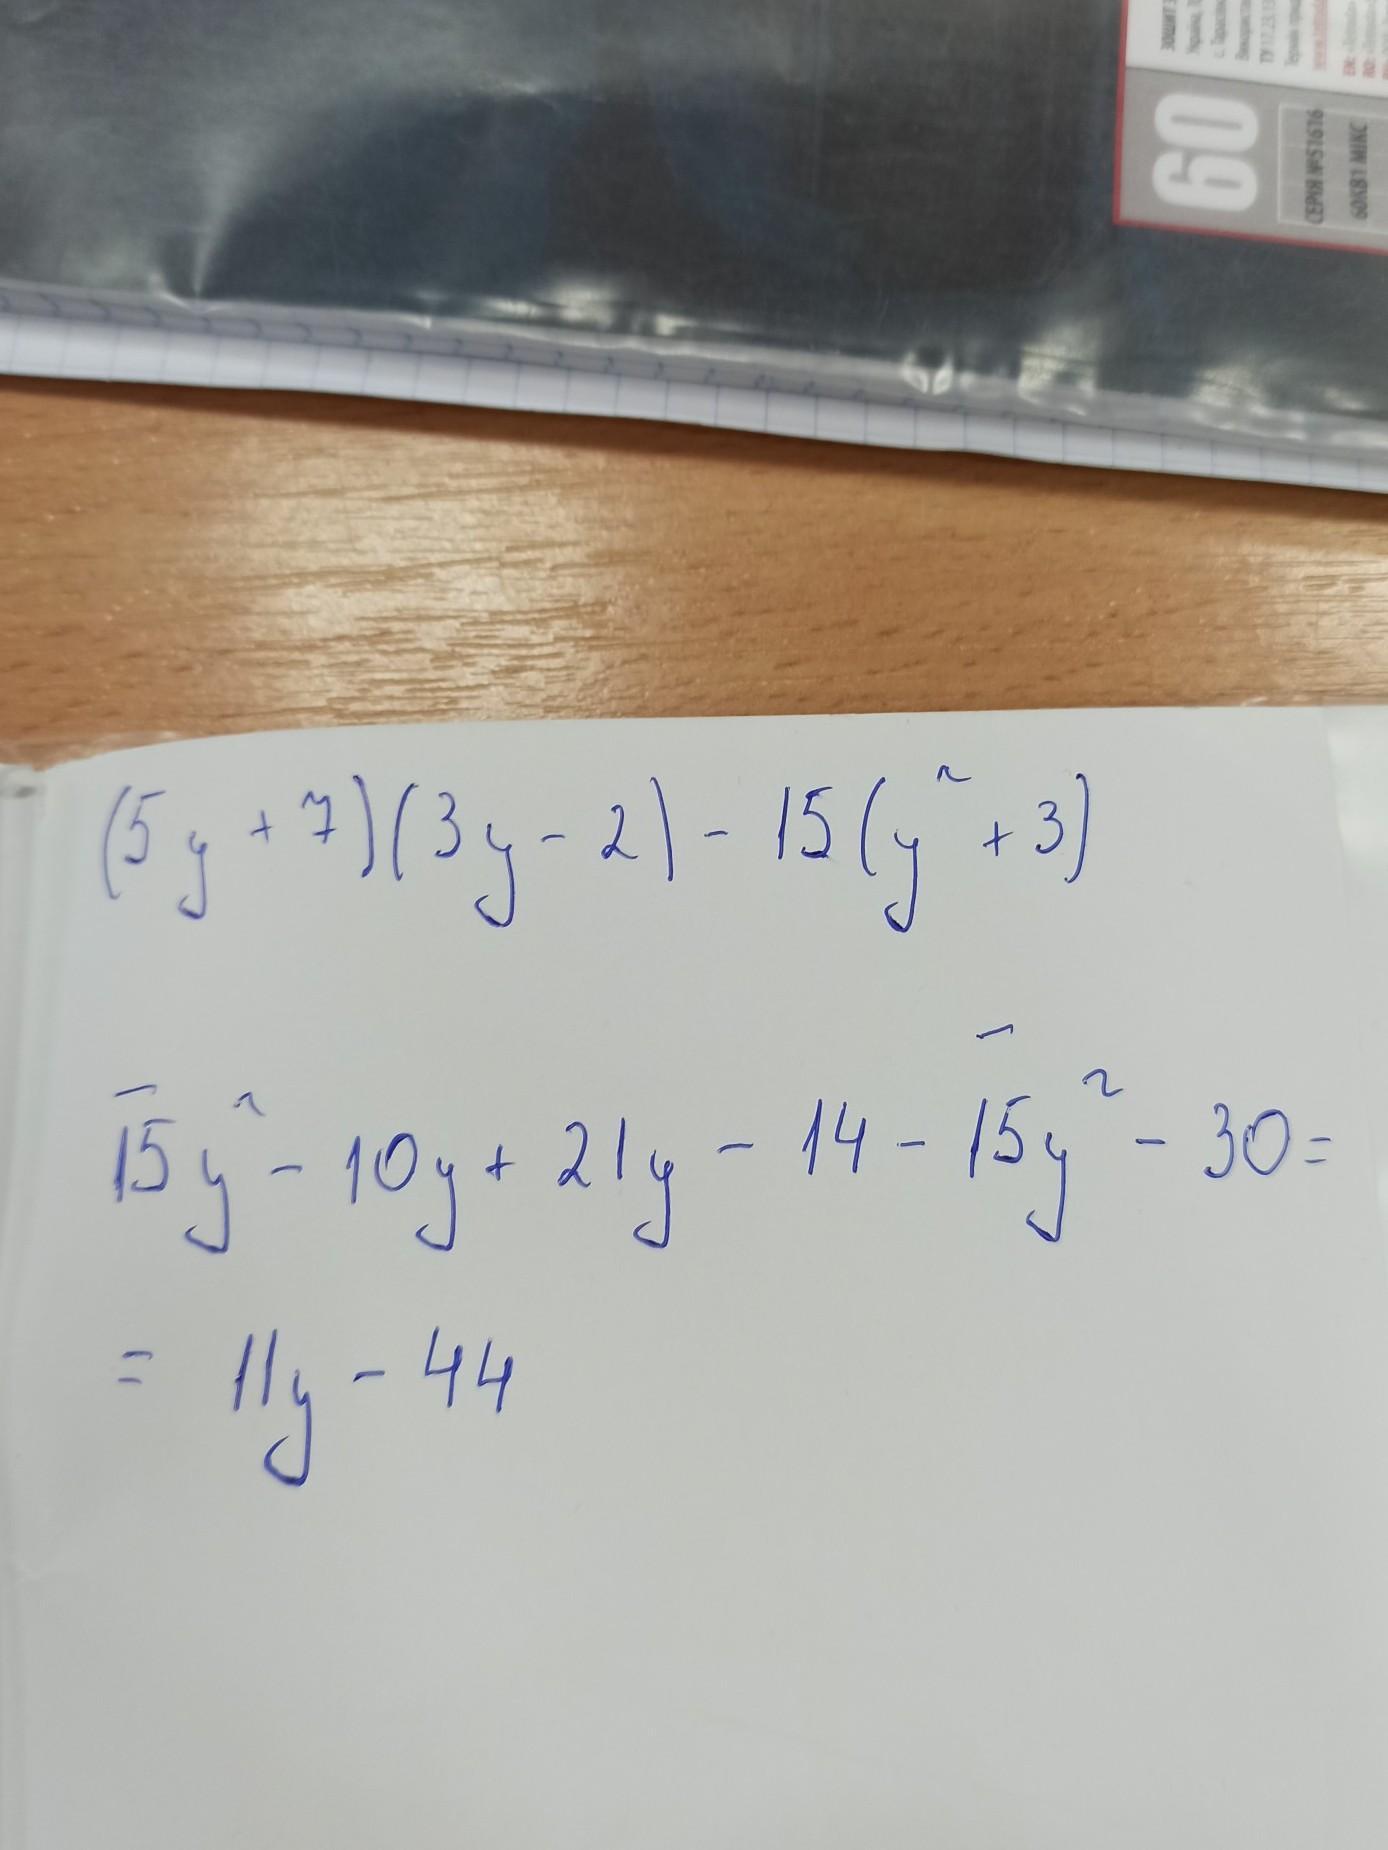 60
СЕРІЯ №51616
60КВ1 МІКС
(5y + 7)(3y - 2) - 15(y² + 3)
15y² - 10y + 21y - 14 - 15y² - 30 =
= 11y - 44